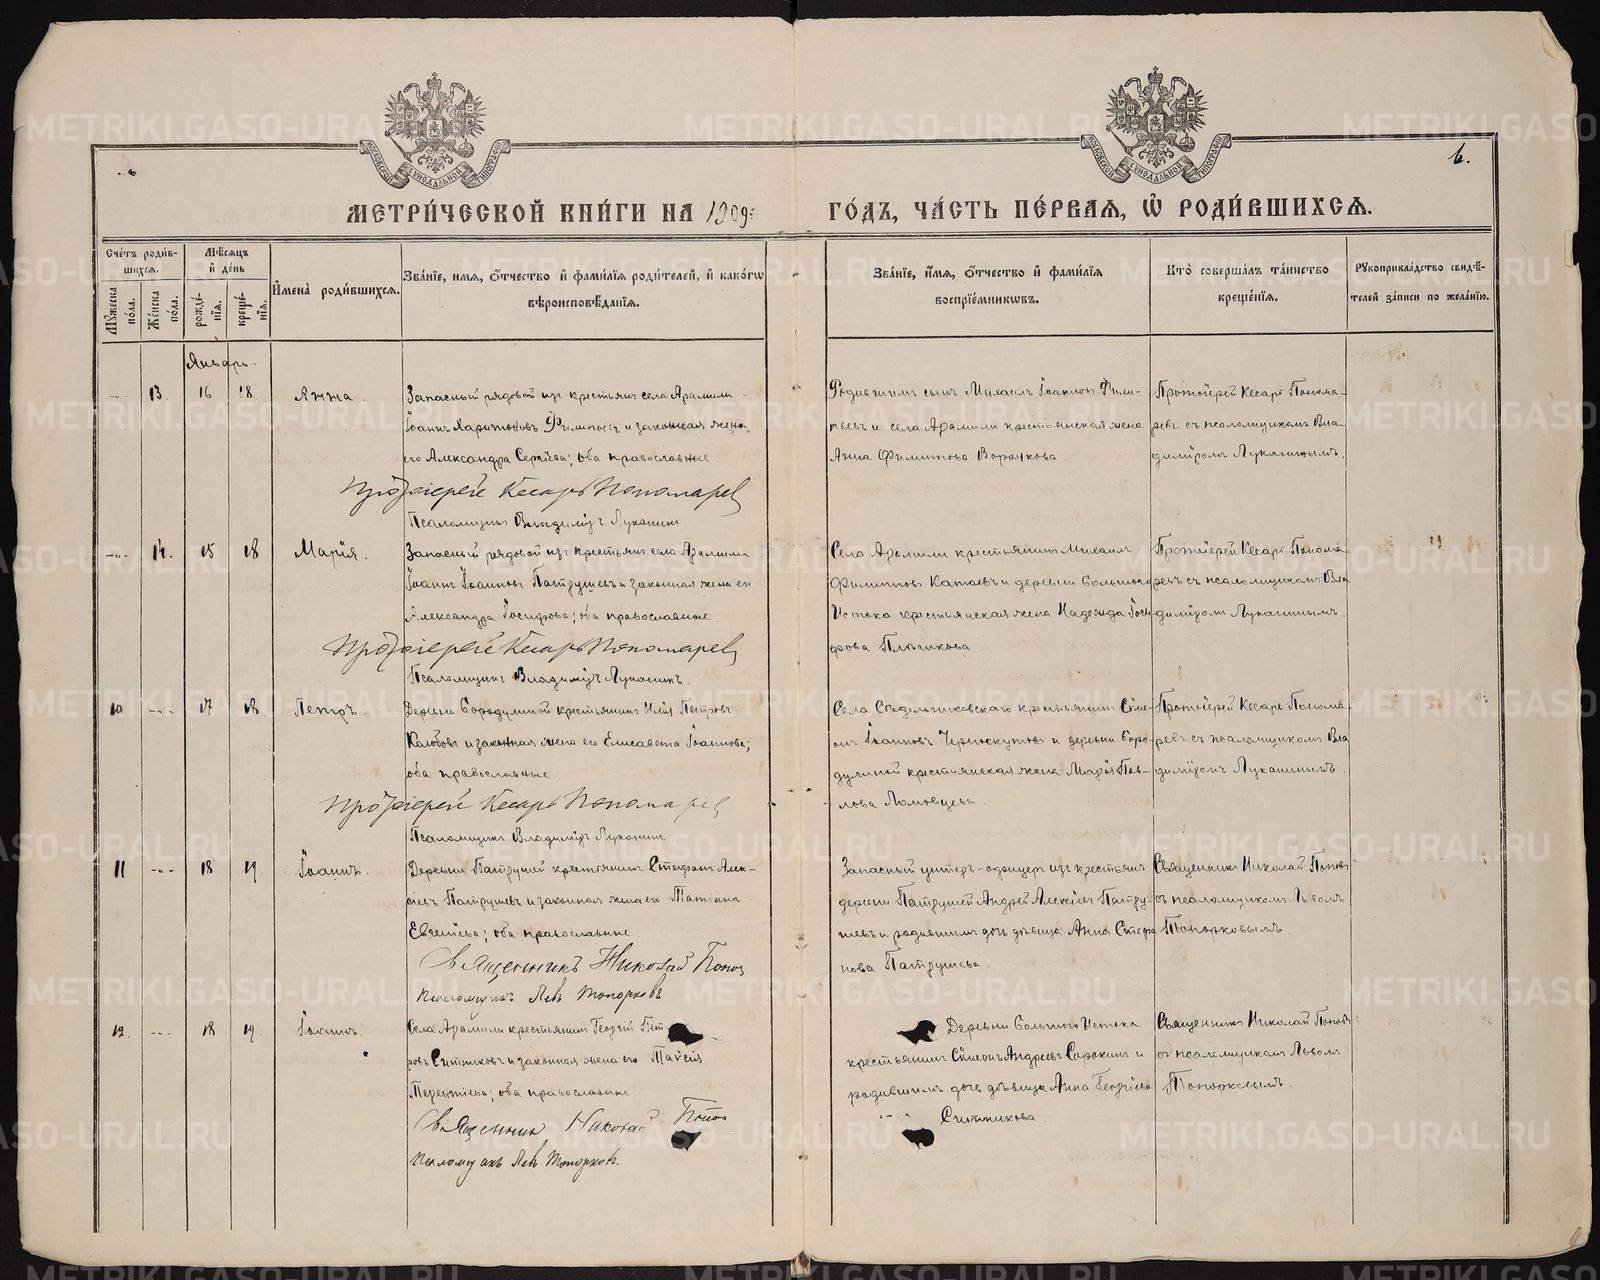 МЕТРИ́ЧЕСКОЙ КНИ́ГИ НА 1909 г. ГО́ДЪ, ЧА́СТЬ ПЕ́РВАЯ, Ѡ҆ РОДИ́ВШИХСѦ.
МОСКОВСКОЙ СѴНОДАЛЬНОЙ ТИПОГРАФІИ
МОСКОВСКОЙ СѴНОДАЛЬНОЙ ТИПОГРАФІИ
Сче́тъ роди́в-
шихсѧ.
Мꙋ́жеска по́ла.
Же́нска по́ла.
Мѣ́сѧцъ и҆ де́нь
рожде́нїѧ.
креще́нїѧ.
И҆мена̀ роди́вшихсѧ.
Зва́нїе, и҆мѧ, ѻ҆́тчество и҆ фами́лїѧ роди́телей, и҆ како́гѡ
вѣроисповѣ́данїѧ.
Зва́нїе, и҆́мѧ, ѻ҆́тчество и҆ фами́лїѧ
воспрїе́мникѡвъ.
Кто̀ соверша́лъ та́инство
креще́нїѧ.
Рꙋкоприкла́дство свидѣ́-
телей за́писи по жела́нїю.
Январь.
13. 16 18 Анна.
Запасный рядовой изъ крестьянъ села Арамили
Іоаннъ Харитоновъ Филипьевъ и законная жена
его Александра Сергіева; оба православные.
Протоіерей Кесарь Пономаревъ
Псаломщикъ Владиміръ Луканинъ
Родившихъ сынъ Михаилъ Іоанновъ Фили-
пьевъ и села Арамили крестьянская жена
Анна Филиппова Воронкова.
Протоіерей Кесарь Понома-
ревъ съ псаломщикомъ Вла-
диміромъ Луканинымъ.
14. 15 18 Марія.
Запасный рядовой изъ крестьянъ села Арамили
Іоаннъ Іоанновъ Патрушевъ и законная жена его
Александра Іосифова; оба православные.
Протоіерей Кесарь Пономаревъ
Псаломщикъ Владиміръ Луканинъ.
Села Арамили крестьянинъ Михаилъ
Филипповъ Катаевъ и деревни Большаго
Истока крестьянская жена Надежда Іоси-
фова
Протоіерей Кесарь Понома-
ревъ съ псаломщикомъ Вла-
диміромъ Луканинымъ.
10 17 18 Петръ.
Деревни Бородулиной крестьянинъ Илія Петровъ
Колобовъ и законная жена его Елисавета Іоаннова;
оба православные
Протоіерей Кесарь Пономаревъ
Псаломщикъ Владиміръ Луканинъ
Села крестьянинъ Сѵме-
онъ Іоанновъ Черноскутовъ и деревни Боро-
дулиной крестьянская жена Марія Пав-
лова Ломовцева.
Протоіерей Кесарь Понома-
ревъ съ псаломщикомъ Вла-
диміромъ Луканинымъ.
11 18 19 Іоаннъ.
Деревни Патрушей крестьянинъ Стефанъ Алек-
сіевъ Патрушевъ и законная жена его Татіана
оба православные
Священникъ Николай Поповъ
Псаломщикъ Левъ Топорковъ
Запасный унтеръ-офицеръ изъ крестьянъ
деревни Патрушей Андрей Алексіевъ Патру-
шевъ и родившихъ дочь дѣвица Анна Стефа-
нова Патрушева.
Священникъ Николай Поповъ
съ псаломщикомъ Львомъ
Топорковымъ.
12. 18 19. Іоаннъ.
Села Арамили крестьянинъ Георгій Пет-
ровъ Ситниковъ и законная жена его Таисія
Терентіева; оба православные
Священникъ Николай Поповъ
Псаломщикъ Левъ Топорковъ.
Деревни Большого Истока
крестьянинъ Сѵмеонъ Андреевъ Сорокинъ и
родившихъ дочь дѣвица Анна Георгіева
Ситникова.
Священникъ Николай Поповъ
съ псаломщикомъ Львомъ
Топорковымъ.
METRIKI.GASO-URAL.RU